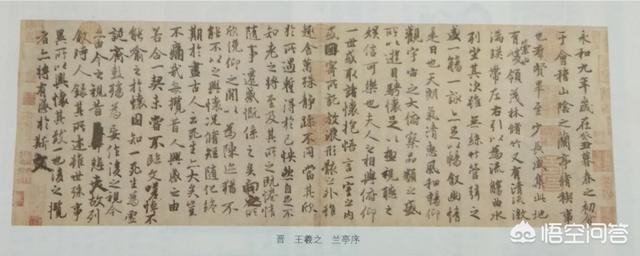 永和九年歲在癸丑暮春之初會
于會稽山陰之蘭亭脩稧事
也羣賢畢至少長咸集此地
有崇山峻領茂林脩竹又有清流激
湍暎帶左右引以為流觴曲水
列坐其次雖無絲竹管弦之
盛一觴一詠亦足以暢敘幽情
是日也天朗氣清惠風和暢仰
觀宇宙之大俯察品類之盛
所以遊目騁懷足以極視聽之
娛信可樂也夫人之相與俯仰
一世或取諸懷抱悟言一室之內
或因寄所託放浪形骸之外雖
趣舍萬殊靜躁不同當其欣
於所遇蹔得於己快然自足不
知老之將至及其所之既惓情
隨事遷感慨係之矣向之所
欣俛仰之閒以為陳迹猶不
能不以之興懷況脩短隨化終
期於盡古人云死生亦大矣豈
不痛哉每攬昔人興感之由
若合一契未嘗不臨文嗟悼不
能喻之於懷固知一死生為虛
誕齊彭殤為妄作後之視今
亦由今之視昔悲夫故列
敘時人錄其所述雖世殊事
異所以興懷其致一也後之攬
者亦將有感於斯文
晋 王羲之 兰亭序
悟空问答